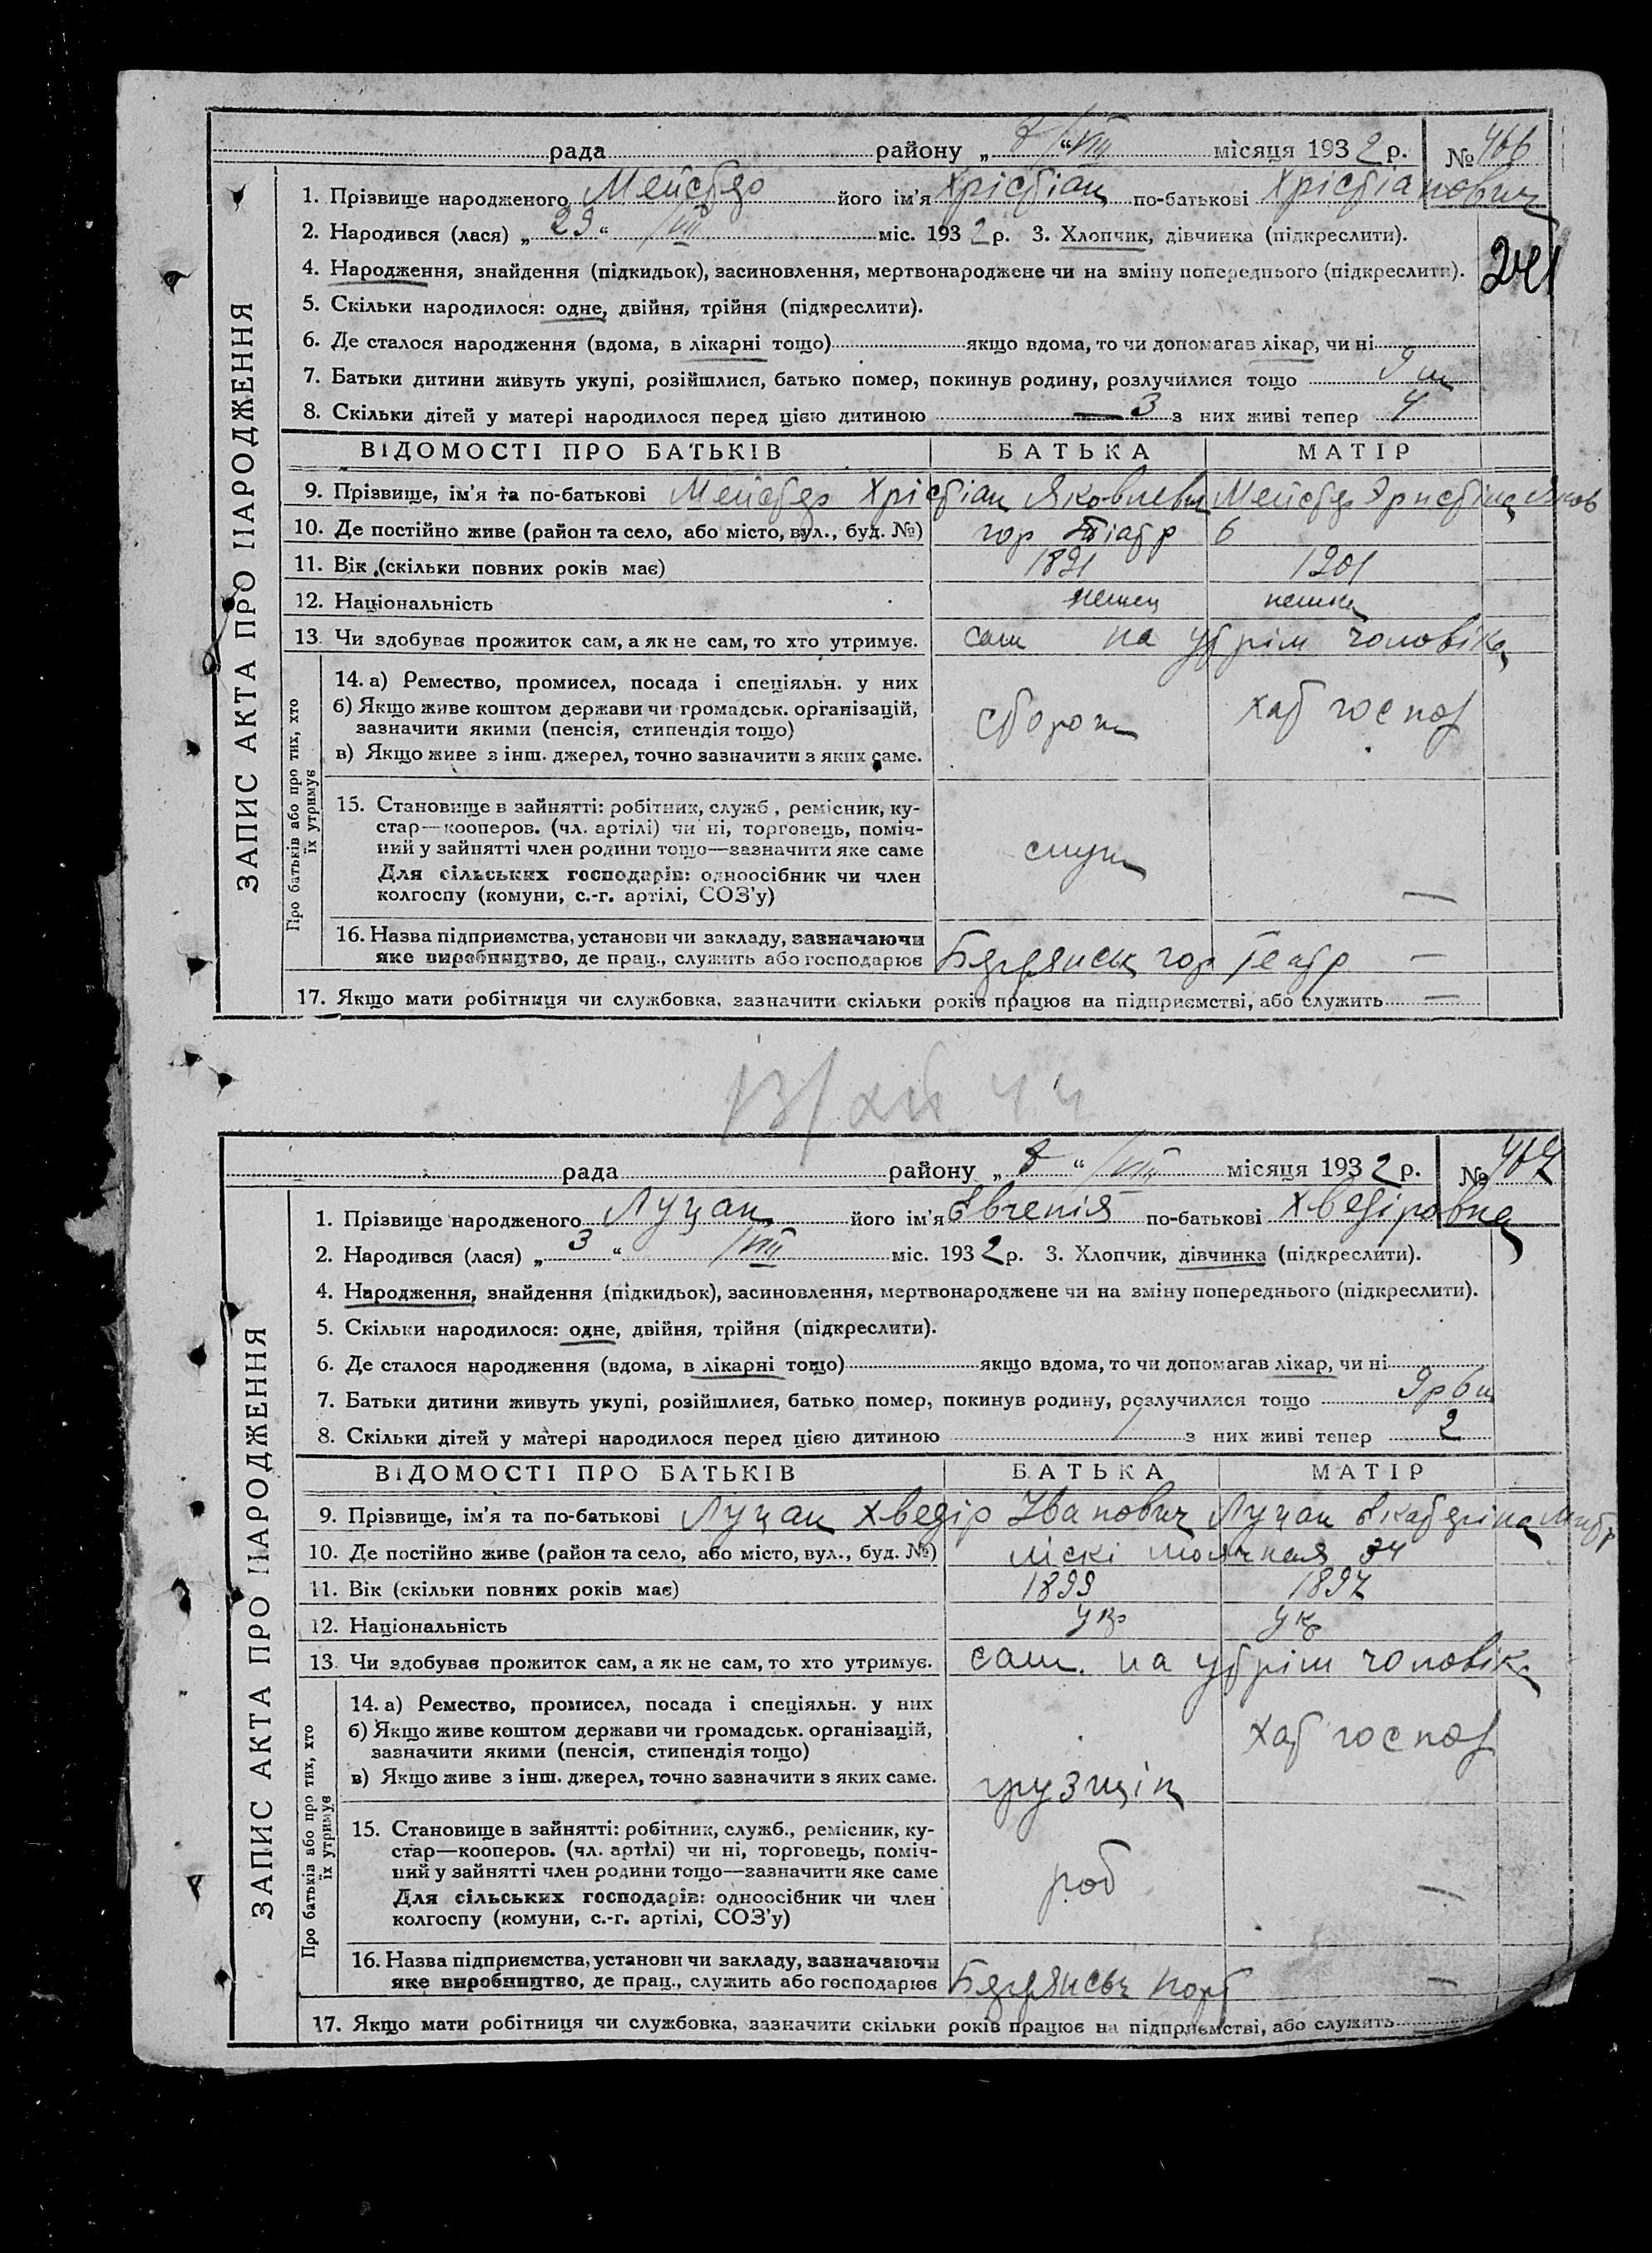 рада району „ 8 “ /VIII місяця 1932 р. № 466
1. Прізвище народженого Мейстер його ім'я Хрістіан по-батькові Хрістіанович
2. Народився (лася) „ 29 “ /VII міс. 1932 р. 3. Хлопчик, дівчинка (підкреслити).
241
4. Народження, знайдення (підкидьок), засиновлення, мертвонароджене чи на зміну попереднього (підкреслити).
5. Скільки народилося: одне, двійня, трійня (підкреслити).
6. Де сталося народження (вдома, в лікарні тощо) якщо вдома, то чи допомагав лікар, чи ні
7. Батьки дитини живуть укупі, розійшлися, батько помер, покинув родину, розлучилися тощо
8. Скільки дітей у матері народилося перед цією дитиною — 3 з них живі тепер 4
ВІДОМОСТІ ПРО БАТЬКІВ БАТЬКА МАТІР
9. Прізвище, ім'я та по-батькові Мейстер Хрістіан Яковлевич Мейстер Яков
10. Де постійно живе (район та село, або місто, вул., буд. №) гор тіатр 6
11. Вік (скільки повних років має) 1891 1901
12. Національність немец немка
13. Чи здобуває прожиток сам, а як не сам, то хто утримує. сам на утрім чоловіка
14. а) Ремество, промисел, посада і спеціяльн. у них
б) Якщо живе коштом держави чи громадськ. організацій,
зазначити якими (пенсія, стипендія тощо)
в) Якщо живе з інш. джерел, точно зазначити з яких саме.
сторож хат господ
15. Становище в зайнятті: робітник, служб., ремісник, ку-
стар—кооперов. (чл. артілі) чи ні, торговець, поміч-
ний у зайнятті член родини тощо—зазначити яке саме
Для сільських господарів: одноосібник чи член
колгоспу (комуни, с.-г. артілі, СОЗ'у)
служ —
16. Назва підприємства, установи чи закладу, зазначаючи
яке виробництво, де прац., служить або господарює Бердянськ гор театр —
17. Якщо мати робітниця чи службовка, зазначити скільки років працює на підприємстві, або служить —
ЗАПИС АКТА ПРО НАРОДЖЕННЯ
Про батьків або про тих, хто
їх утримує
рада району „ 8 “ /VIII місяця 1932 р. № 467
1. Прізвище народженого Луцан його ім'я Євгенія по-батькові Хведіровна
2. Народився (лася) „ 3 “ /VIII міс. 1932 р. 3. Хлопчик, дівчинка (підкреслити).
4. Народження, знайдення (підкидьок), засиновлення, мертвонароджене чи на зміну попереднього (підкреслити).
5. Скільки народилося: одне, двійня, трійня (підкреслити).
6. Де сталося народження (вдома, в лікарні тощо) якщо вдома, то чи допомагав лікар, чи ні
7. Батьки дитини живуть укупі, розійшлися, батько помер, покинув родину, розлучилися тощо
8. Скільки дітей у матері народилося перед цією дитиною 1 з них живі тепер 2
ВІДОМОСТІ ПРО БАТЬКІВ БАТЬКА МАТІР
9. Прізвище, ім'я та по-батькові Луцан Хведір Іванович Луцан Єкатеріна
10. Де постійно живе (район та село, або місто, вул., буд. №) ліскі 34
11. Вік (скільки повних років має) 1899 1897
12. Національність укр укр
13. Чи здобуває прожиток сам, а як не сам, то хто утримує. сам. на утрім чоловіка
14. а) Ремество, промисел, посада і спеціяльн. у них
б) Якщо живе коштом держави чи громадськ. організацій,
зазначити якими (пенсія, стипендія тощо)
в) Якщо живе з інш. джерел, точно зазначити з яких саме.
грузщік хат господ
15. Становище в зайнятті: робітник, служб., ремісник, ку-
стар—кооперов. (чл. артілі) чи ні, торговець, поміч-
ний у зайнятті член родини тощо—зазначити яке саме
Для сільських господарів: одноосібник чи член
колгоспу (комуни, с.-г. артілі, СОЗ'у)
роб —
16. Назва підприємства, установи чи закладу, зазначаючи
яке виробництво, де прац., служить або господарює Бердянськ порт —
17. Якщо мати робітниця чи службовка, зазначити скільки років працює на підприємстві, або служить
ЗАПИС АКТА ПРО НАРОДЖЕННЯ
Про батьків або про тих, хто
їх утримує